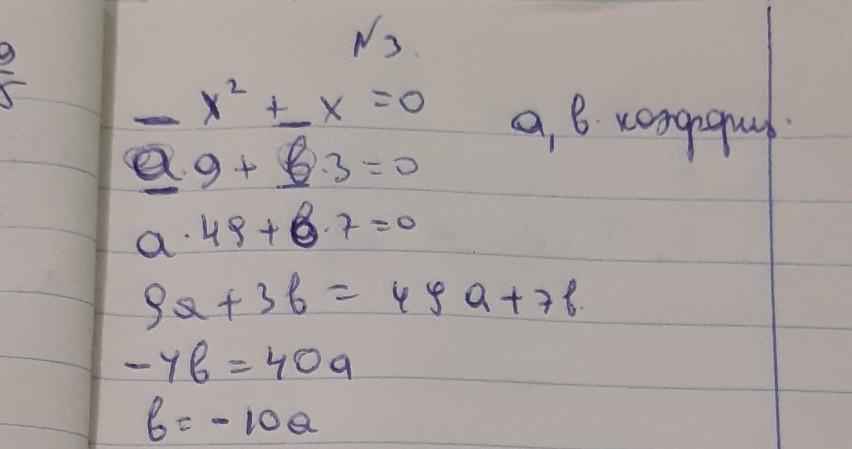 9
5
N3.
_ x² + _ x = 0
a, в. коэффиц.
a·9 + в·3 = 0
a·49 + в·7 = 0
9a + 3в = 49a + 7в.
-4в = 40a
в = -10a